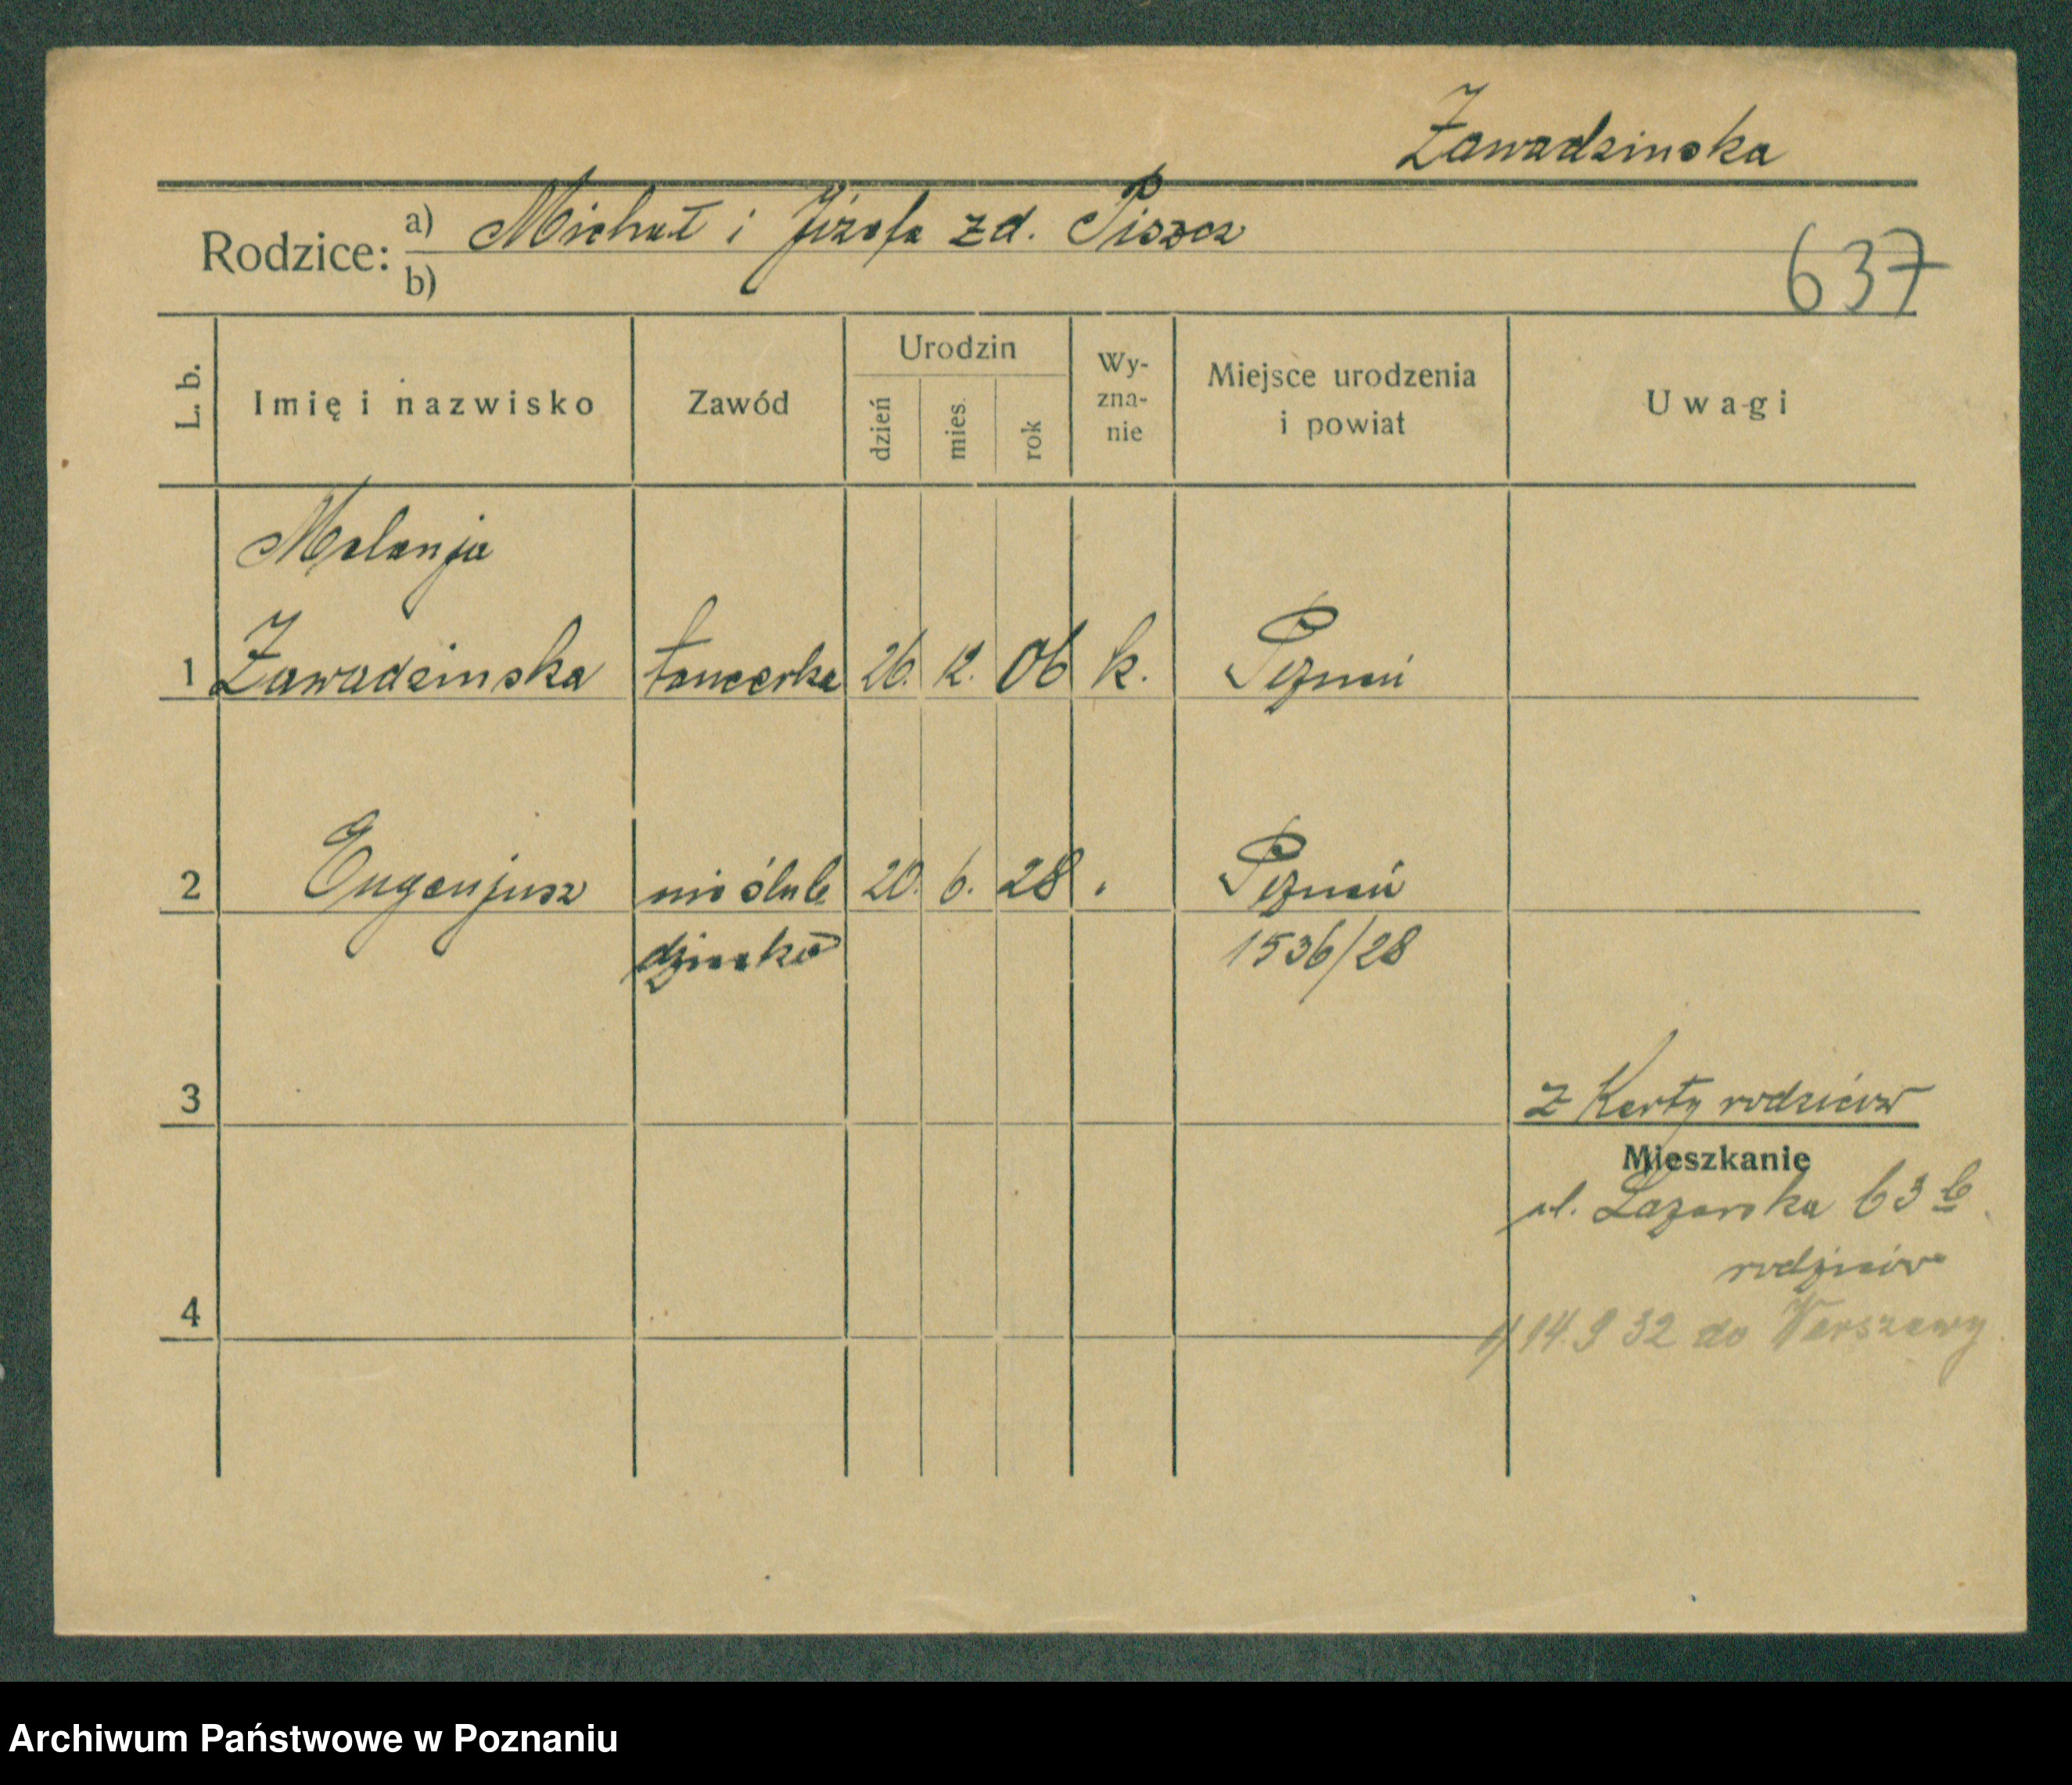 Zawadzinska
Rodzice: a) Michał i Józefa zd. Piszcz
b)
637
L. b.
Imię i nazwisko
Zawód
Urodzin
dzień
mies.
rok
Wy-
zna-
nie
Miejsce urodzenia
i powiat
Uwagi
Melanja
1 Zawadzinska tancerka 26. 12. 06 k. Poznań
2 Eugenjusz nieślub 20. 6. 28 Poznań
dziecko 1536/28
3
z Karty rodziców
Mieszkanie
ul. Łazarska 63 b
rodziców
4
14.9 32 do Warszawy
Archiwum Państwowe w Poznaniu